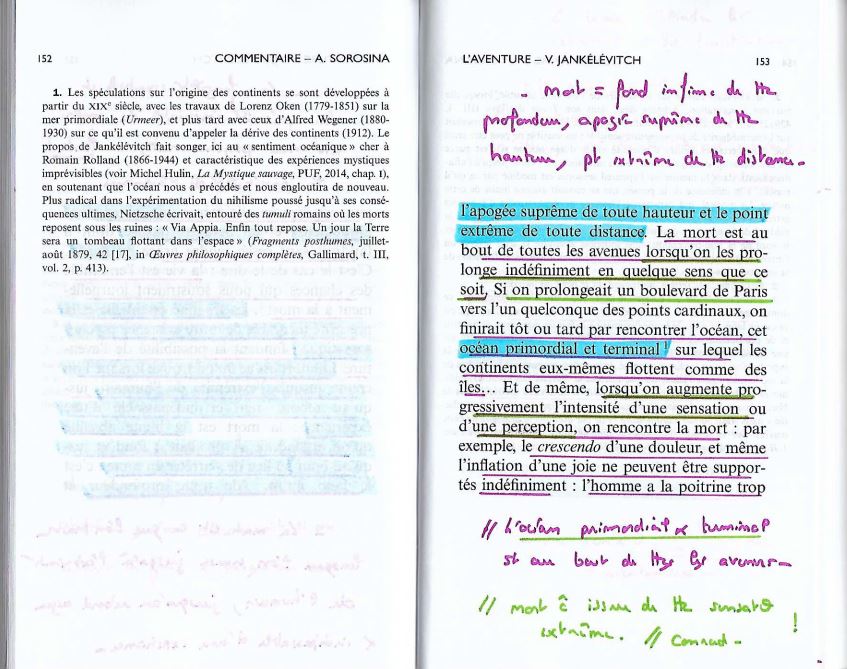 152 COMMENTAIRE – A. SOROSINA
1. Les spéculations sur l'origine des continents se sont développées à
partir du XIXe siècle, avec les travaux de Lorenz Oken (1779-1851) sur la
mer primordiale (Urmeer), et plus tard avec ceux d'Alfred Wegener (1880-
1930) sur ce qu'il est convenu d'appeler la dérive des continents (1912). Le
propos de Jankélévitch fait songer ici au « sentiment océanique » cher à
Romain Rolland (1866-1944) et caractéristique des expériences mystiques
imprévisibles (voir Michel Hulin, La Mystique sauvage, PUF, 2014, chap. I),
en soutenant que l'océan nous a précédés et nous engloutira de nouveau.
Plus radical dans l'expérimentation du nihilisme poussé jusqu'à ses consé-
quences ultimes, Nietzsche écrivait, entouré des tumuli romains où les morts
reposent sous les ruines : « Via Appia. Enfin tout repose. Un jour la Terre
sera un tombeau flottant dans l'espace » (Fragments posthumes, juillet-
août 1879, 42 [17], in Œuvres philosophiques complètes, Gallimard, t. III,
vol. 2, p. 413).
L'AVENTURE – V. JANKÉLÉVITCH 153
- mort = fond infime de tte
profondeur, apogée suprême de tte
hauteur, pt extrême de tte distance -
l'apogée suprême de toute hauteur et le point
extrême de toute distance. La mort est au
bout de toutes les avenues lorsqu'on les pro-
longe indéfiniment en quelque sens que ce
soit. Si on prolongeait un boulevard de Paris
vers l'un quelconque des points cardinaux, on
finirait tôt ou tard par rencontrer l'océan, cet
océan primordial et terminal1 sur lequel les
continents eux-mêmes flottent comme des
îles... Et de même, lorsqu'on augmente pro-
gressivement l'intensité d'une sensation ou
d'une perception, on rencontre la mort : par
exemple, le crescendo d'une douleur, et même
l'inflation d'une joie ne peuvent être suppor-
tés indéfiniment : l'homme a la poitrine trop
// L'océan primordial & terminal
est au bout de ttes les avenues -
// mort ê issue de tte
extrême. // Conrad - !